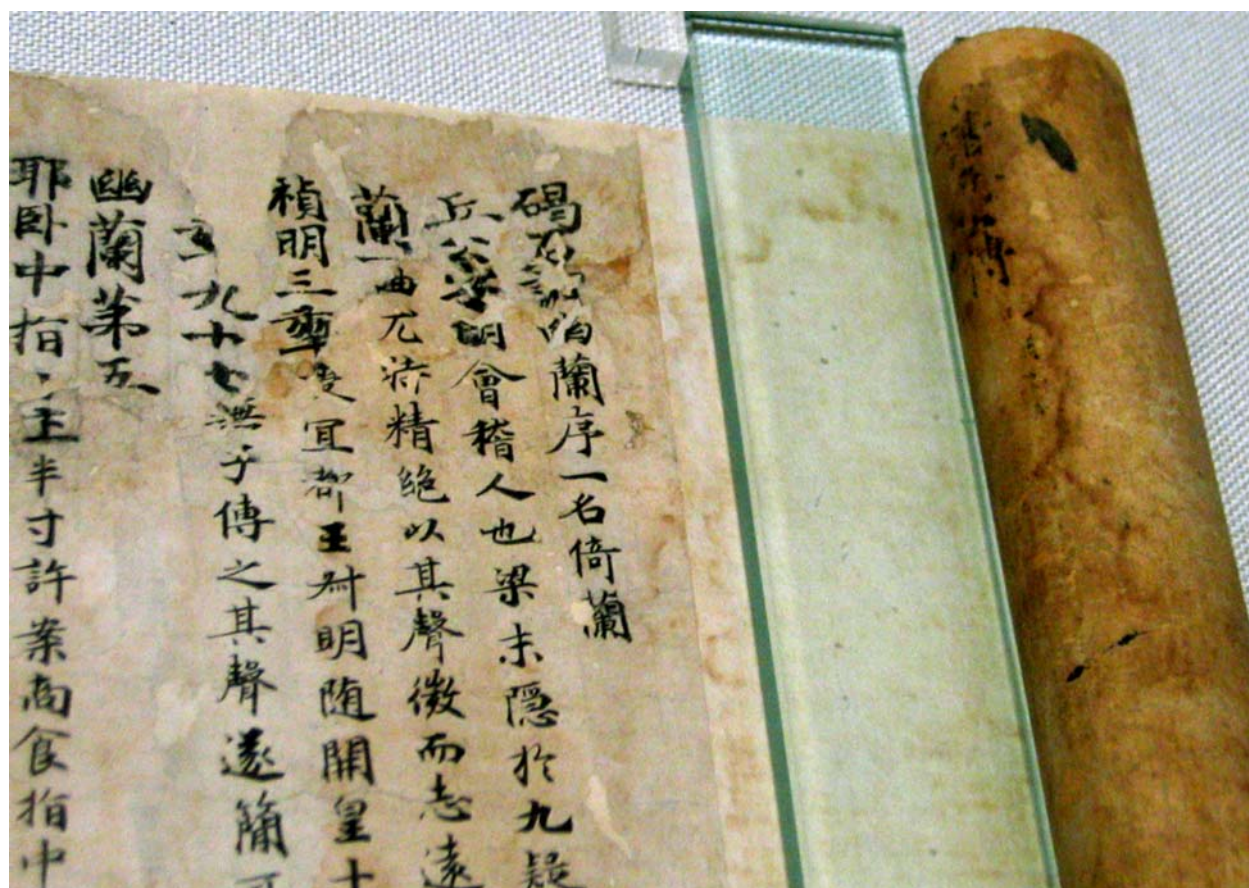 碣石調幽蘭序一名倚蘭
丘公字明會稽人也梁末隱於九疑
蘭一曲尤演精絶以其聲微而志遠
禎明三年授宜都王叔明随開皇十
九十七無子傳之其聲遂簡
幽蘭苐五
耶卧中指、主半寸許案商食指中